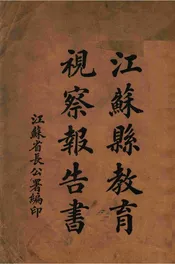 江蘇縣教育
視察報告書
江蘇省長公署編印